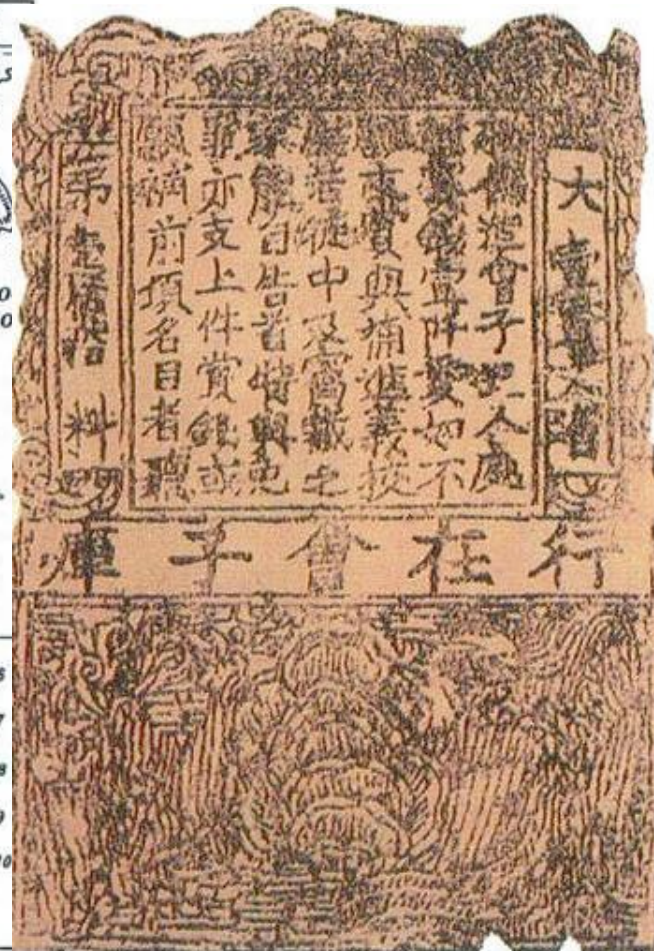 大壹貫文省
造會子犯人處
賞錢壹阡貫如不
支賞與補進義校
若徒中及窩藏之
家能自告首特與免
罪亦支上件賞錢或
願補前項名目者聽
第壹 拾 料
行在會子庫
7
8
9